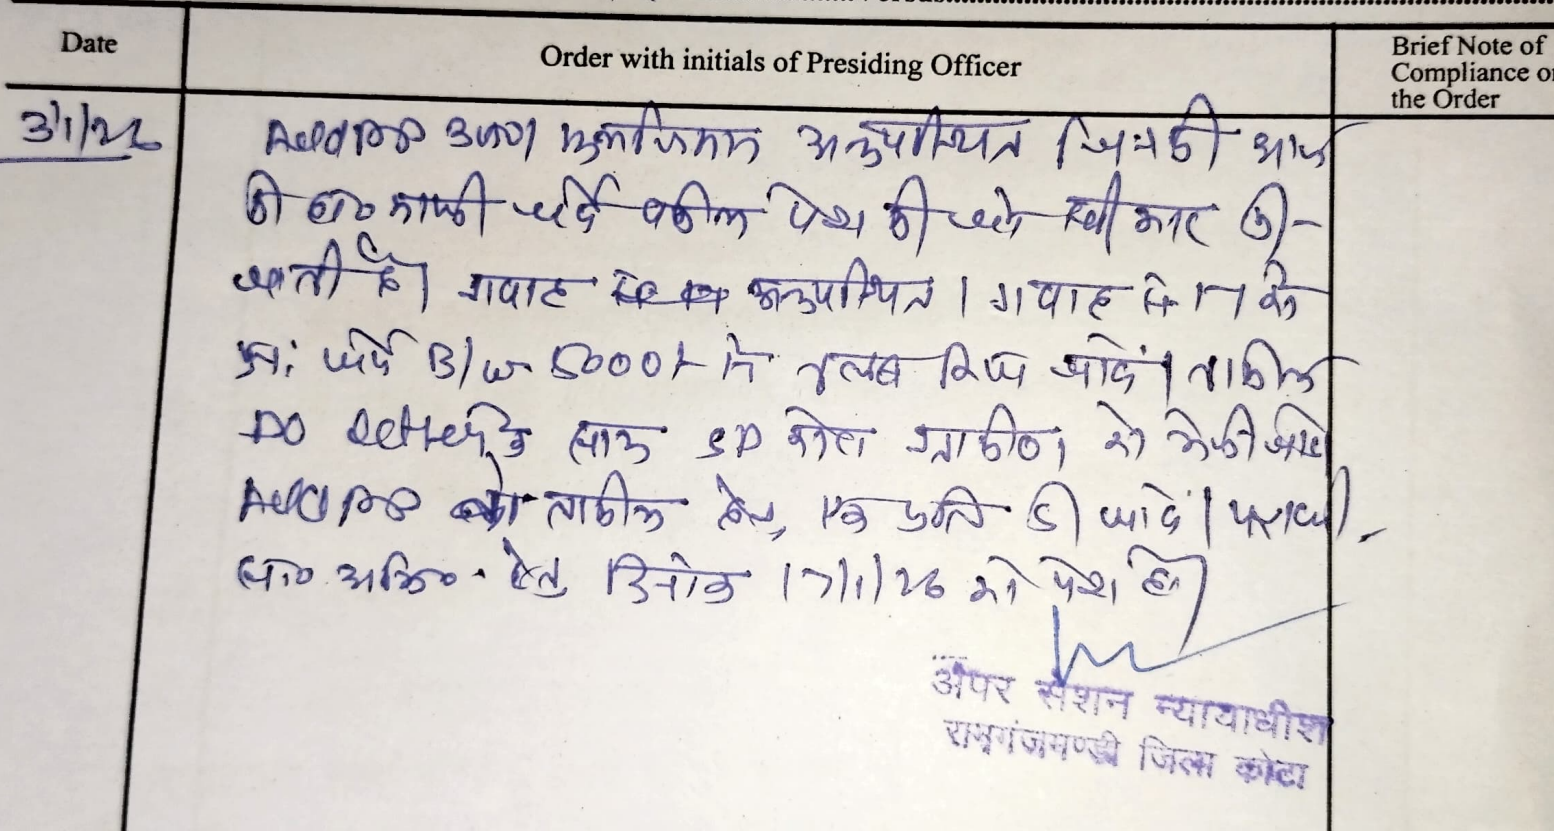 Date
Order with initials of Presiding Officer
Brief Note of
Compliance o
the Order
अनुपस्थित जिनकी आज
की हा० माफी जर्ये वकील पेश की जो स्वीकार की-
जाती है। गवाह अनुपस्थित। गवाह को
जर्ये B/W 5000/- से तलब किया जावे। तामील
DO letter के साथ SP कोटा को भेजी जावे
को तामील हेतु एक प्रति दी जावे। पत्रावली
हेतु दिनांक 17/1/26 को पेश हो।
अपर सेशन न्यायाधीश
रामगंजमण्डी जिला कोटा